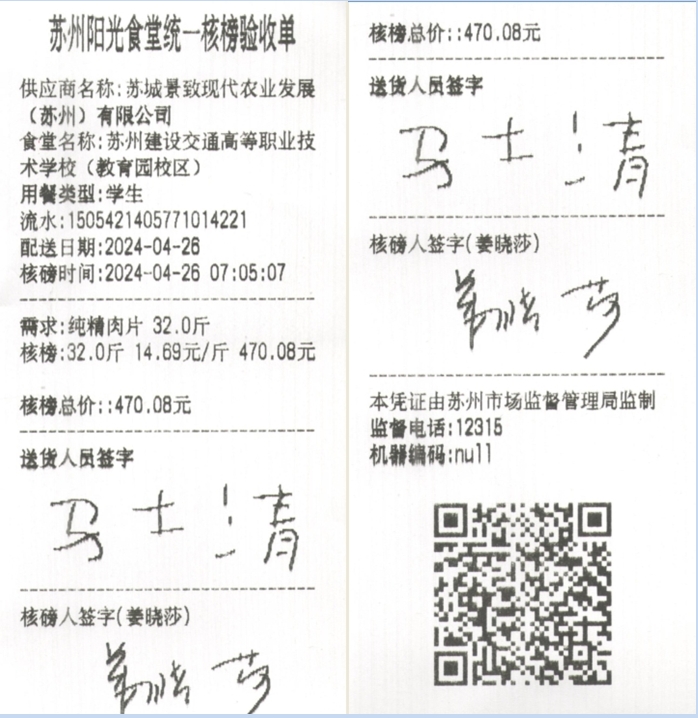 苏州阳光食堂统一核榜验收单
供应商名称:苏城景致现代农业发展
（苏州）有限公司
食堂名称:苏州建设交通高等职业技
术学校（教育园校区）
用餐类型:学生
流水:1505421405771014221
配送日期:2024-04-26
核磅时间:2024-04-26 07:05:07
需求:纯精肉片 32.0斤
核榜:32.0斤 14.69元/斤 470.08元
核榜总价::470.08元
送货人员签字
马士清
核磅人签字(姜晓莎)
姜晓莎
核榜总价::470.08元
送货人员签字
马士清
核磅人签字(姜晓莎)
姜晓莎
本凭证由苏州市场监督管理局监制
监督电话:12315
机器编码:null